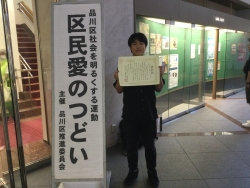 品川区社会を明るくする運動
区民愛のつどい
主催 品川区推進委員会